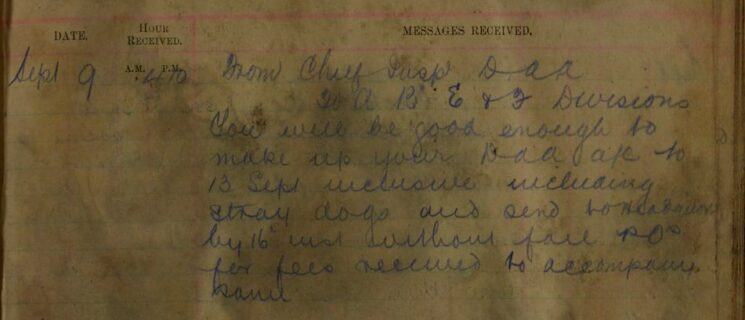 DATE. HOUR RECEIVED. MESSAGES RECEIVED.
A.M. P.M.
Sept 9 From Chief Insp
To A B E & F Divisions
You will be good enough to
make up your to
13 Sept inclusive including
stray dogs and send to
by 16 inst without fail POs
for fees received to accompany
same